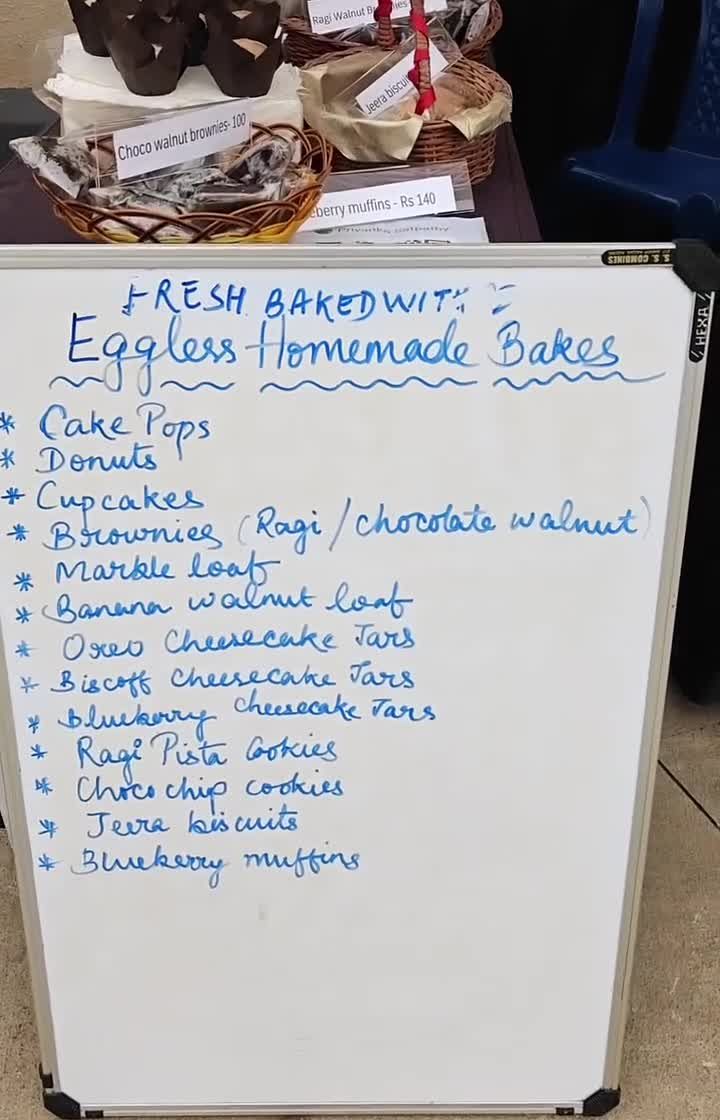 Ragi Walnut
Jeera biscuit
Choco walnut brownies- 100
eberry muffins - Rs 140
S. S. COMBINES
HEXA
FRESH BAKED WITH
Eggless Homemade Bakes
* Cake Pops
* Donuts
* Cupcakes
* Brownies (Ragi / chocolate walnut)
* Marble loaf
* Banana walnut loaf
* Oreo Cheesecake Jars
* Biscoff Cheesecake Jars
* Blueberry Cheesecake Jars
* Ragi Pista Cookies
* Choco chip cookies
* Jeera biscuits
* Blueberry muffins